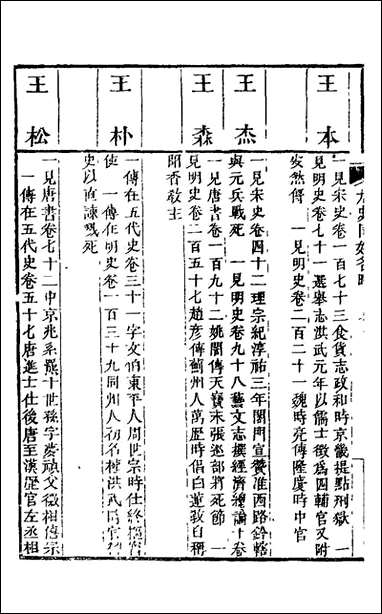 王本
一見宋史卷一百七十三食貨志政和時京畿提點刑獄　一
見明史卷七十一選舉志洪武元年以儒士徵爲四輔官又附
安然傳　一見明史卷二百二十一魏時亮傳隆慶時中官
王杰
一見宋史卷四十二理宗紀淳祐三年閤門宣贊淮西路鈐轄
與元兵戰死　一見明史卷九十八藝文志撰經濟總論十卷
王森
一見唐書卷一百九十二姚誾傳天寶末張巡部將死節　一
見明史卷二百五十七趙彥傳薊州人萬歷時倡白蓮教自稱
聞香教主
王朴
一傳在五代史卷三十一字文伯東平人周世宗時仕終樞密
使　一傳在明史卷一百三十九同州人初名權洪武時官御
史以直諫戮死
王松
一見唐書卷七十二中京兆系羆十世孫字夢禎父徽相僖宗
一傳在五代史卷五十七唐進士仕後唐至漢歷官左丞相